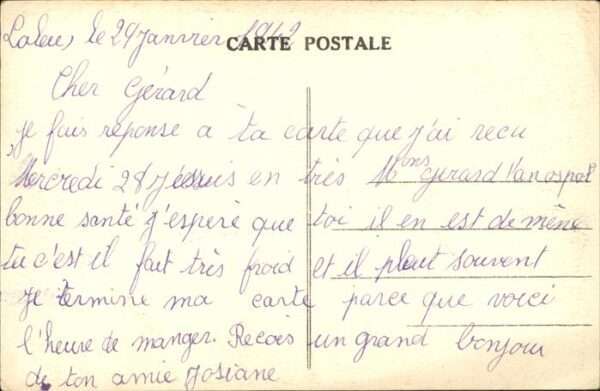 Laleu, le 29 janvier 1942
CARTE POSTALE
Cher Gérard
je fais réponse a ta carte que j'ai recu
Mercredi 28 je suis en très
Mons Gerard
bonne santé j'espère que toi il en est de même
tu c'est il fait très froid et il pleut souvent
je termine ma carte parce que voici
l'heure de manger. Recois un grand bonjour
de ton amie Josiane